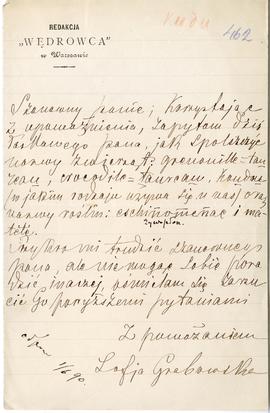 REDAKCJA
„WĘDROWCA”
w Warszawie
Kudu
462
Szanowny panie; Korzystając
z upoważnienia, zapytam dziś
łaskawego pana, jak spolszczyć
nazwy zwierząt: grenouille-tau-
reau, crocodile taureau, koudou
w jakim rodzaju używa się u nas) oraz
nazwy roślin: eschinomenae i ma-
tété.
Przykro mi trudzić szanownego
pana, ale nie mogąc sobie pora-
dzić inaczej, ośmielam się zarzu-
cić Go powyższemi pytaniami
Z poważaniem
Zofja Grabowska
1/6 90.